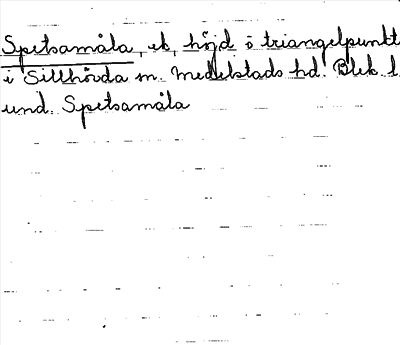 Spetsamåla, ek, höjd o triangelpunkt
i Sillhövda sn. Medelstads hd. Blek. l.
und. Spetsamåla